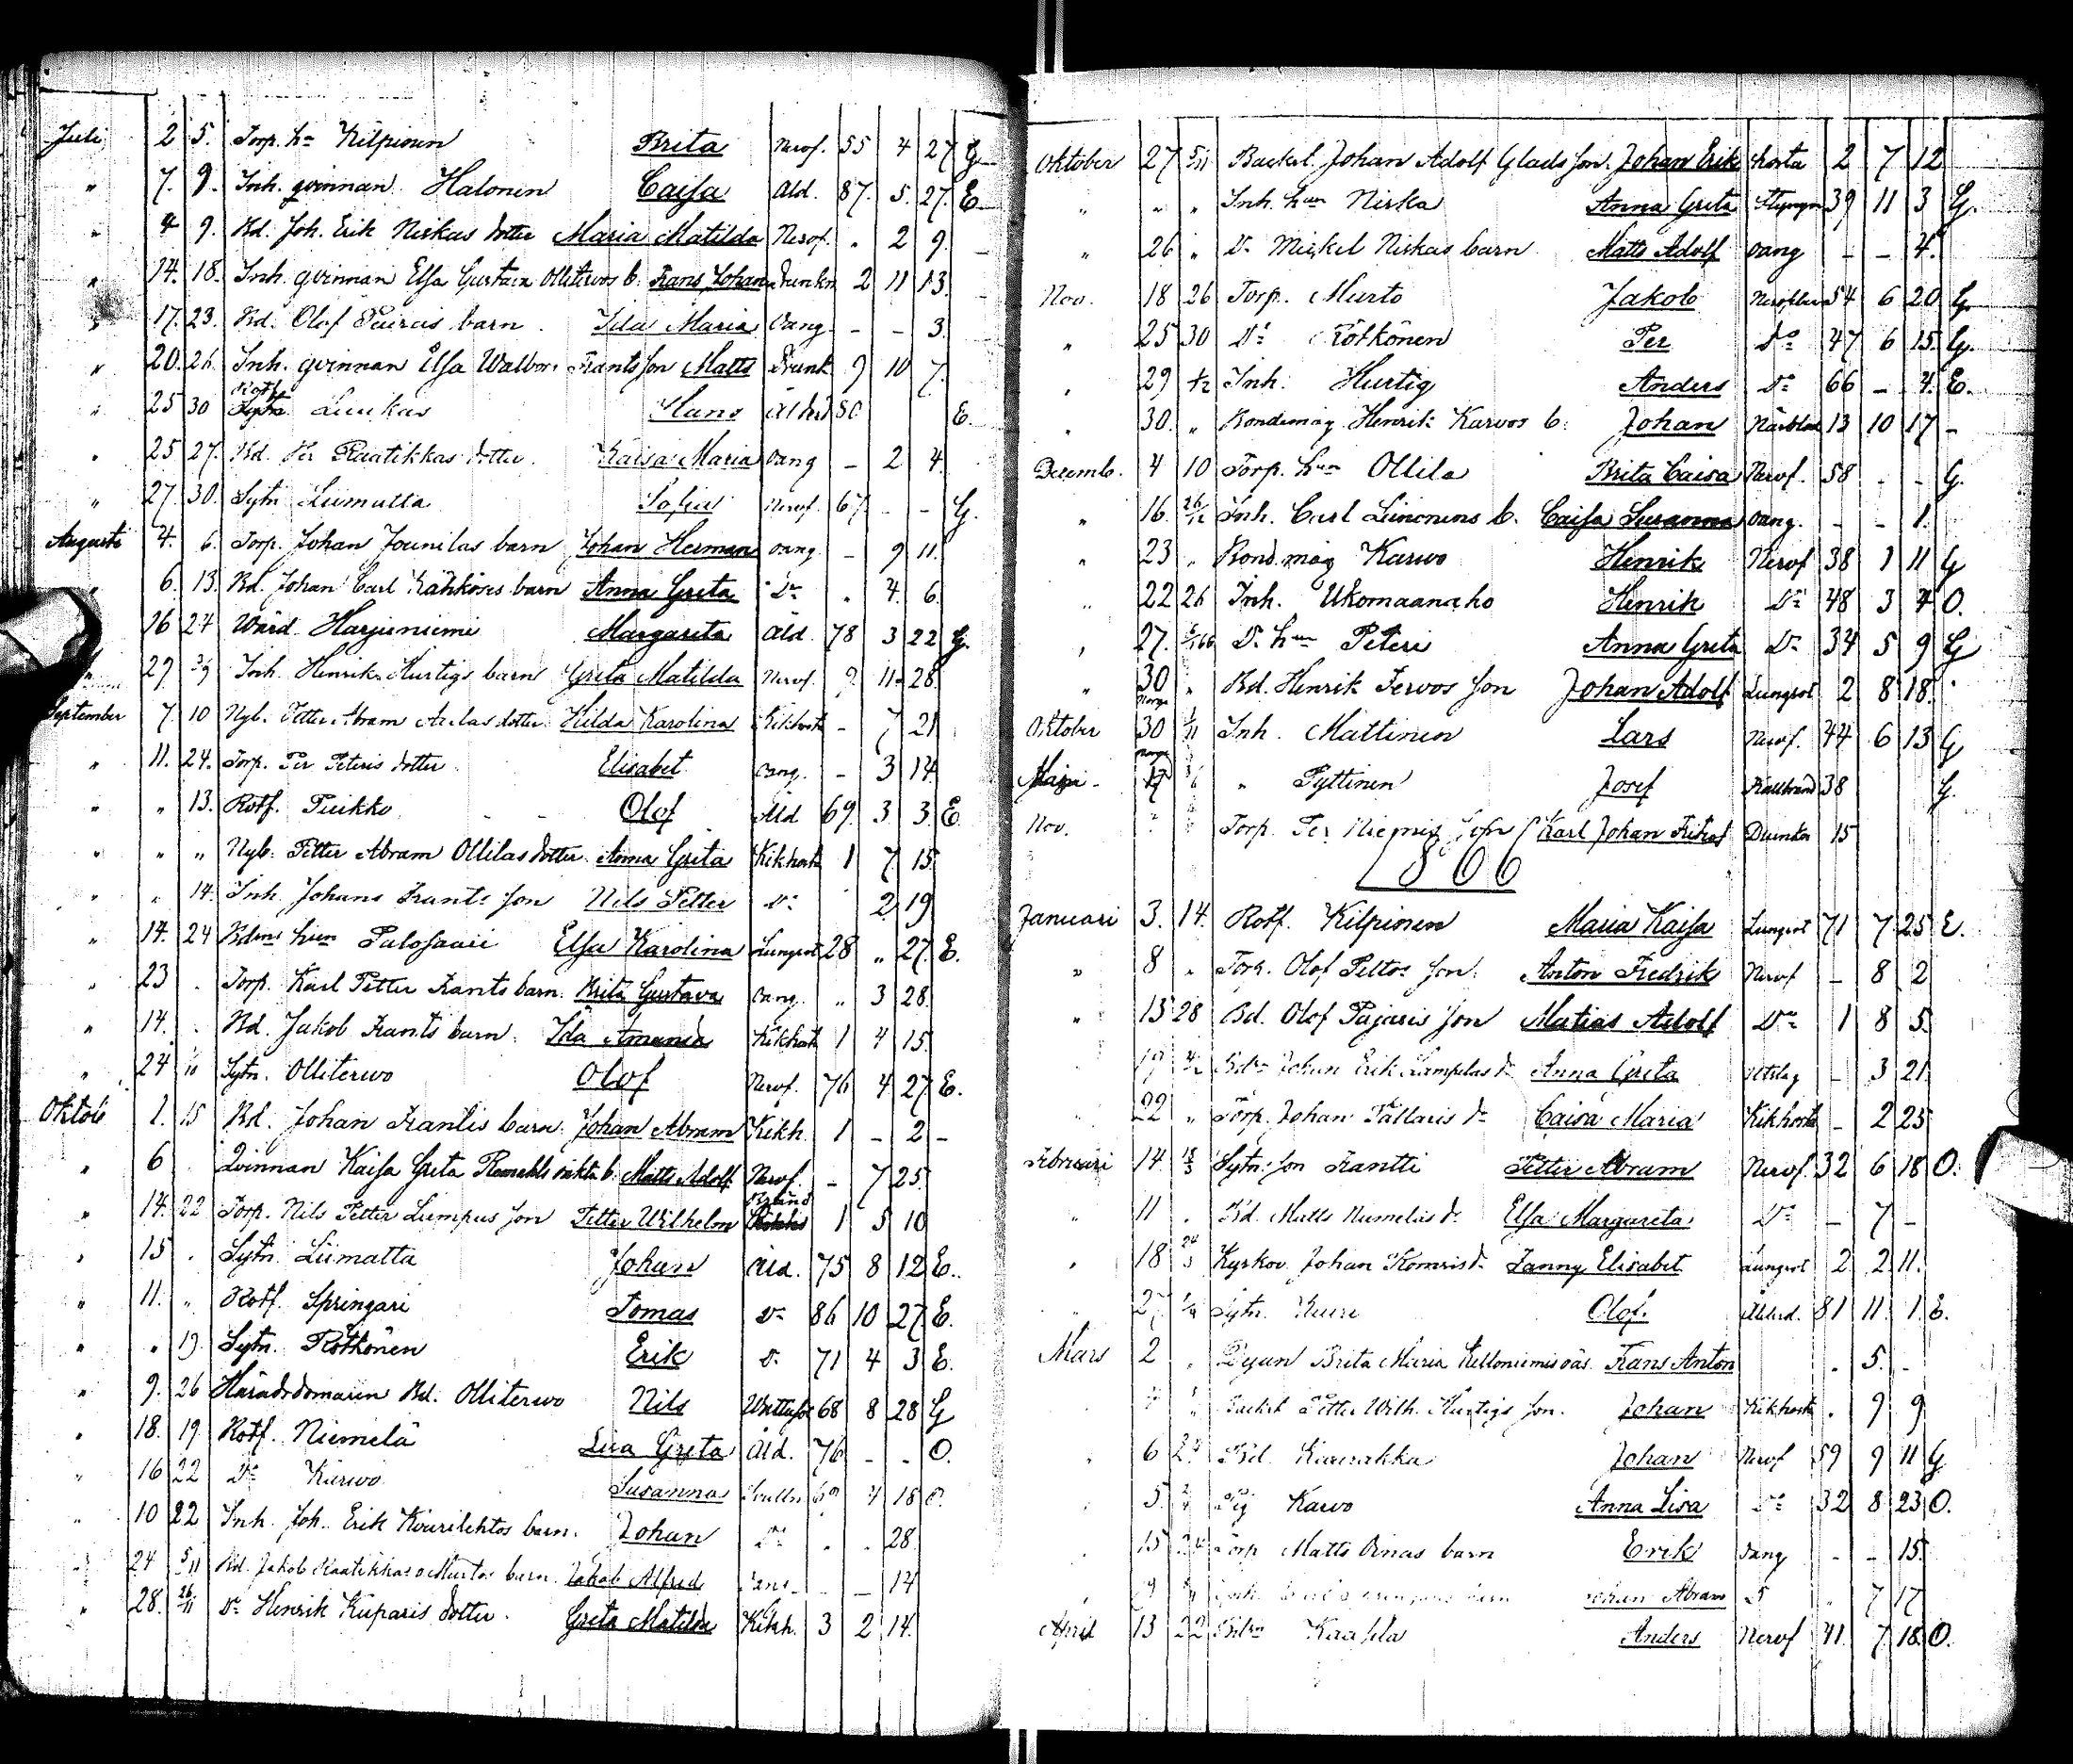 Juli 2 5. Torp. hn Kilpionen Brita Nervf. 55 4 27 G
" 7. 9. Inh. qvinnan Halonen Caisa Ald. 87. 5. 27. E
" 4 9. Bd. Joh. Erik Niskas dotter Maria Matilda Nervf. " 2 9.
" 14. 18. Inh. qvinnan Elsa Gustava Olliterwos b. Frans Johan Drunkn 2 11 13.
" 17. 23. Bd. Olof barn Ida Maria Oang. - - 3.
" 20. 26. Inh. qvinnan Elsa Walbor. Frants son Matts Drunk 9 10 7.
" 25 30 Rotf. Luukas Hans 50 E.
" 25 27. Bd. Per Raatikkas dotter. Kaisa Maria Oang - 2 4.
" 27. 30. Sytn. Liimatta Sofia Nervf. 67 - - G.
Augusti 4. 6. Torp. Johan Jounilas barn Johan Herman Oang. - 9 11.
6. 13. Bd. Johan Carl Kähkönes barn Anna Greta Do " 4. 6.
16 24 Wärd. Harjuniemi Margareta Ald. 78 3 22 G.
29 3/9 Inh. Henrik Hurtigs barn Greta Matilda Nervf. 9 11 28.
September 7. 10 Nyb. Petter Abram dotter Hilda Karolina Kikhosta - 7 21
" 11. 24. Torp. Per Peteris dotter Elisabet Oang. - 3 14.
" " 13. Rotf. Puikko Olof Ald 69. 3. 3. E.
" " " Nyb. Petter Abram Ollilas dotter Anna Greta Kikhosta 1 7. 15.
" " 14. Inh. Johans Frants son Nils Petter Do 2. 19
" 14. 24 hun Palosaari Elsa Karolina Lungsot 28 " 27. E.
" 23 . Torp. Karl Petter Frants barn. Brita Gustava Oang. " 3 28.
" 14. . Bd. Jakob Frants barn. Ida Amanda Kikhosta 1 4 15.
" 24 Sytn. Olliterwo Olof Nervf. 76 4 27. E.
Oktob 1. 15 Bd. Johan Frantis barn. Johan Abram Kikh. 1 - 2 -
" 6 Qvinnan Kaisa Greta b. Matts Adolf Nervf. - 7 25.
" 14. 22 Torp. Nils Petter Lumpus son Petter Wilhelm 1 5 10
" 15 . Sytn. Liimatta Johan Ald. 75 8 12 E.
" 11. " Rotf. Springari Tomas Do 86 10 27 E.
" " 19. Sytn. Rötkönen Erik Do 71 4 3 E.
" 9. 26 Häradsdomaren Bd. Olliterwo Nils Wattusot 68 8 28 G
" 18. 19. Rotf. Niemelä Lisa Greta Ald. 76 - - O.
" 16 22 Do Karwo Susanna 4 18 O.
" 10 22 Inh. Joh. Erik Kourilehtos barn. Johan Do . . 28.
24 5/11 Bd. Jakob Raatikkas o Murtos barn. Jakob Alfred - - 14
" 28. 26/11 Do Henrik Kuparis dotter. Greta Matilda Kikh. 3 2 14.
Oktober 27 5/11 Backst. Johan Adolf Glads son. Johan Erik hosta 2 7 12
" " " Inh. hun Niska Anna Greta 39 11 3 G.
" 26 " Do Mickel Niskas barn Matts Adolf Oang - - 4.
Nov. 18 26 Torp. Murto Jakob 54 6 20 G.
" 25 30 Do Rötkönen Per Do 47 6 15. G.
" 29 1/12 Inh. Hurtig Anders Do 66 - 4. E.
" 30. " Bondemåg Henrik Karvos b. Johan 13 10 17 -
Decemb. 4 10 Torp. hun Ollila Brita Caisa Nervf. 58 - - G.
" 16. 26/12 Inh. Carl b. Caisa Susanna Oang. - - 1.
" 23 " Bond.måg Karwo Henrik Nervf 38 1 11 G
" 22 26 Inh. Ukomaanaho Henrik Do 48 3 4 O.
" 27. Do hun Peteri Anna Greta Do 34 5 9 G
" 30 " Bd. Henrik Tervos son Johan Adolf Lungsot 2 8 18.
Oktober 30 1/11 Inh. Mattinen Lars Nervf. 44 6 13 G
" Pyttinen Josef Kallbrand 38 G.
Nov. Torp. Per son Karl Johan Drunkn 15
1866
Januari 3. 14. Rotf. Kilpionen Maria Kaisa Lungsot 71 7 25 E.
" 8 " Torp. Olof Peltos son. Anton Fredrik Nervf - 8 2
" 13 28 Bd. Olof Pajaris son Matias Adolf Do 1 8 5.
Johan Erik Lampelas dr Anna Greta Utslag - 3 21
22 " Torp. Johan Tallaris dr Caisa Maria Kikhosta - 2 25
Februari 14 Sytn. son Frantti Petter Abram Nervf. 32 6 18 O.
" 11 . Bd. Matts Numelas dr Elsa Margareta Do - 7 -
" 18 Kyrkov. Johan dr Fanny Elisabet Lungsot 2 2 11.
Sytn. Olof. 81 11. 1. E.
Mars 2 " Brita Maria Kelloniemis oäs. Frans Anton . 5. -
Backst Petter Wilh. Hurtigs son. Johan Kikhosta . 9 9
6 Bd. Johan Nervf 59 9 11 G
5 Pig Karvo Anna Lisa Do 32 8 23 O.
15 24 Torp Matts barn Erik Oang - - 15.
barn Johan Abram 7 17
April 13 22 Kaakla Anders Nervf 41. 7. 18. O.